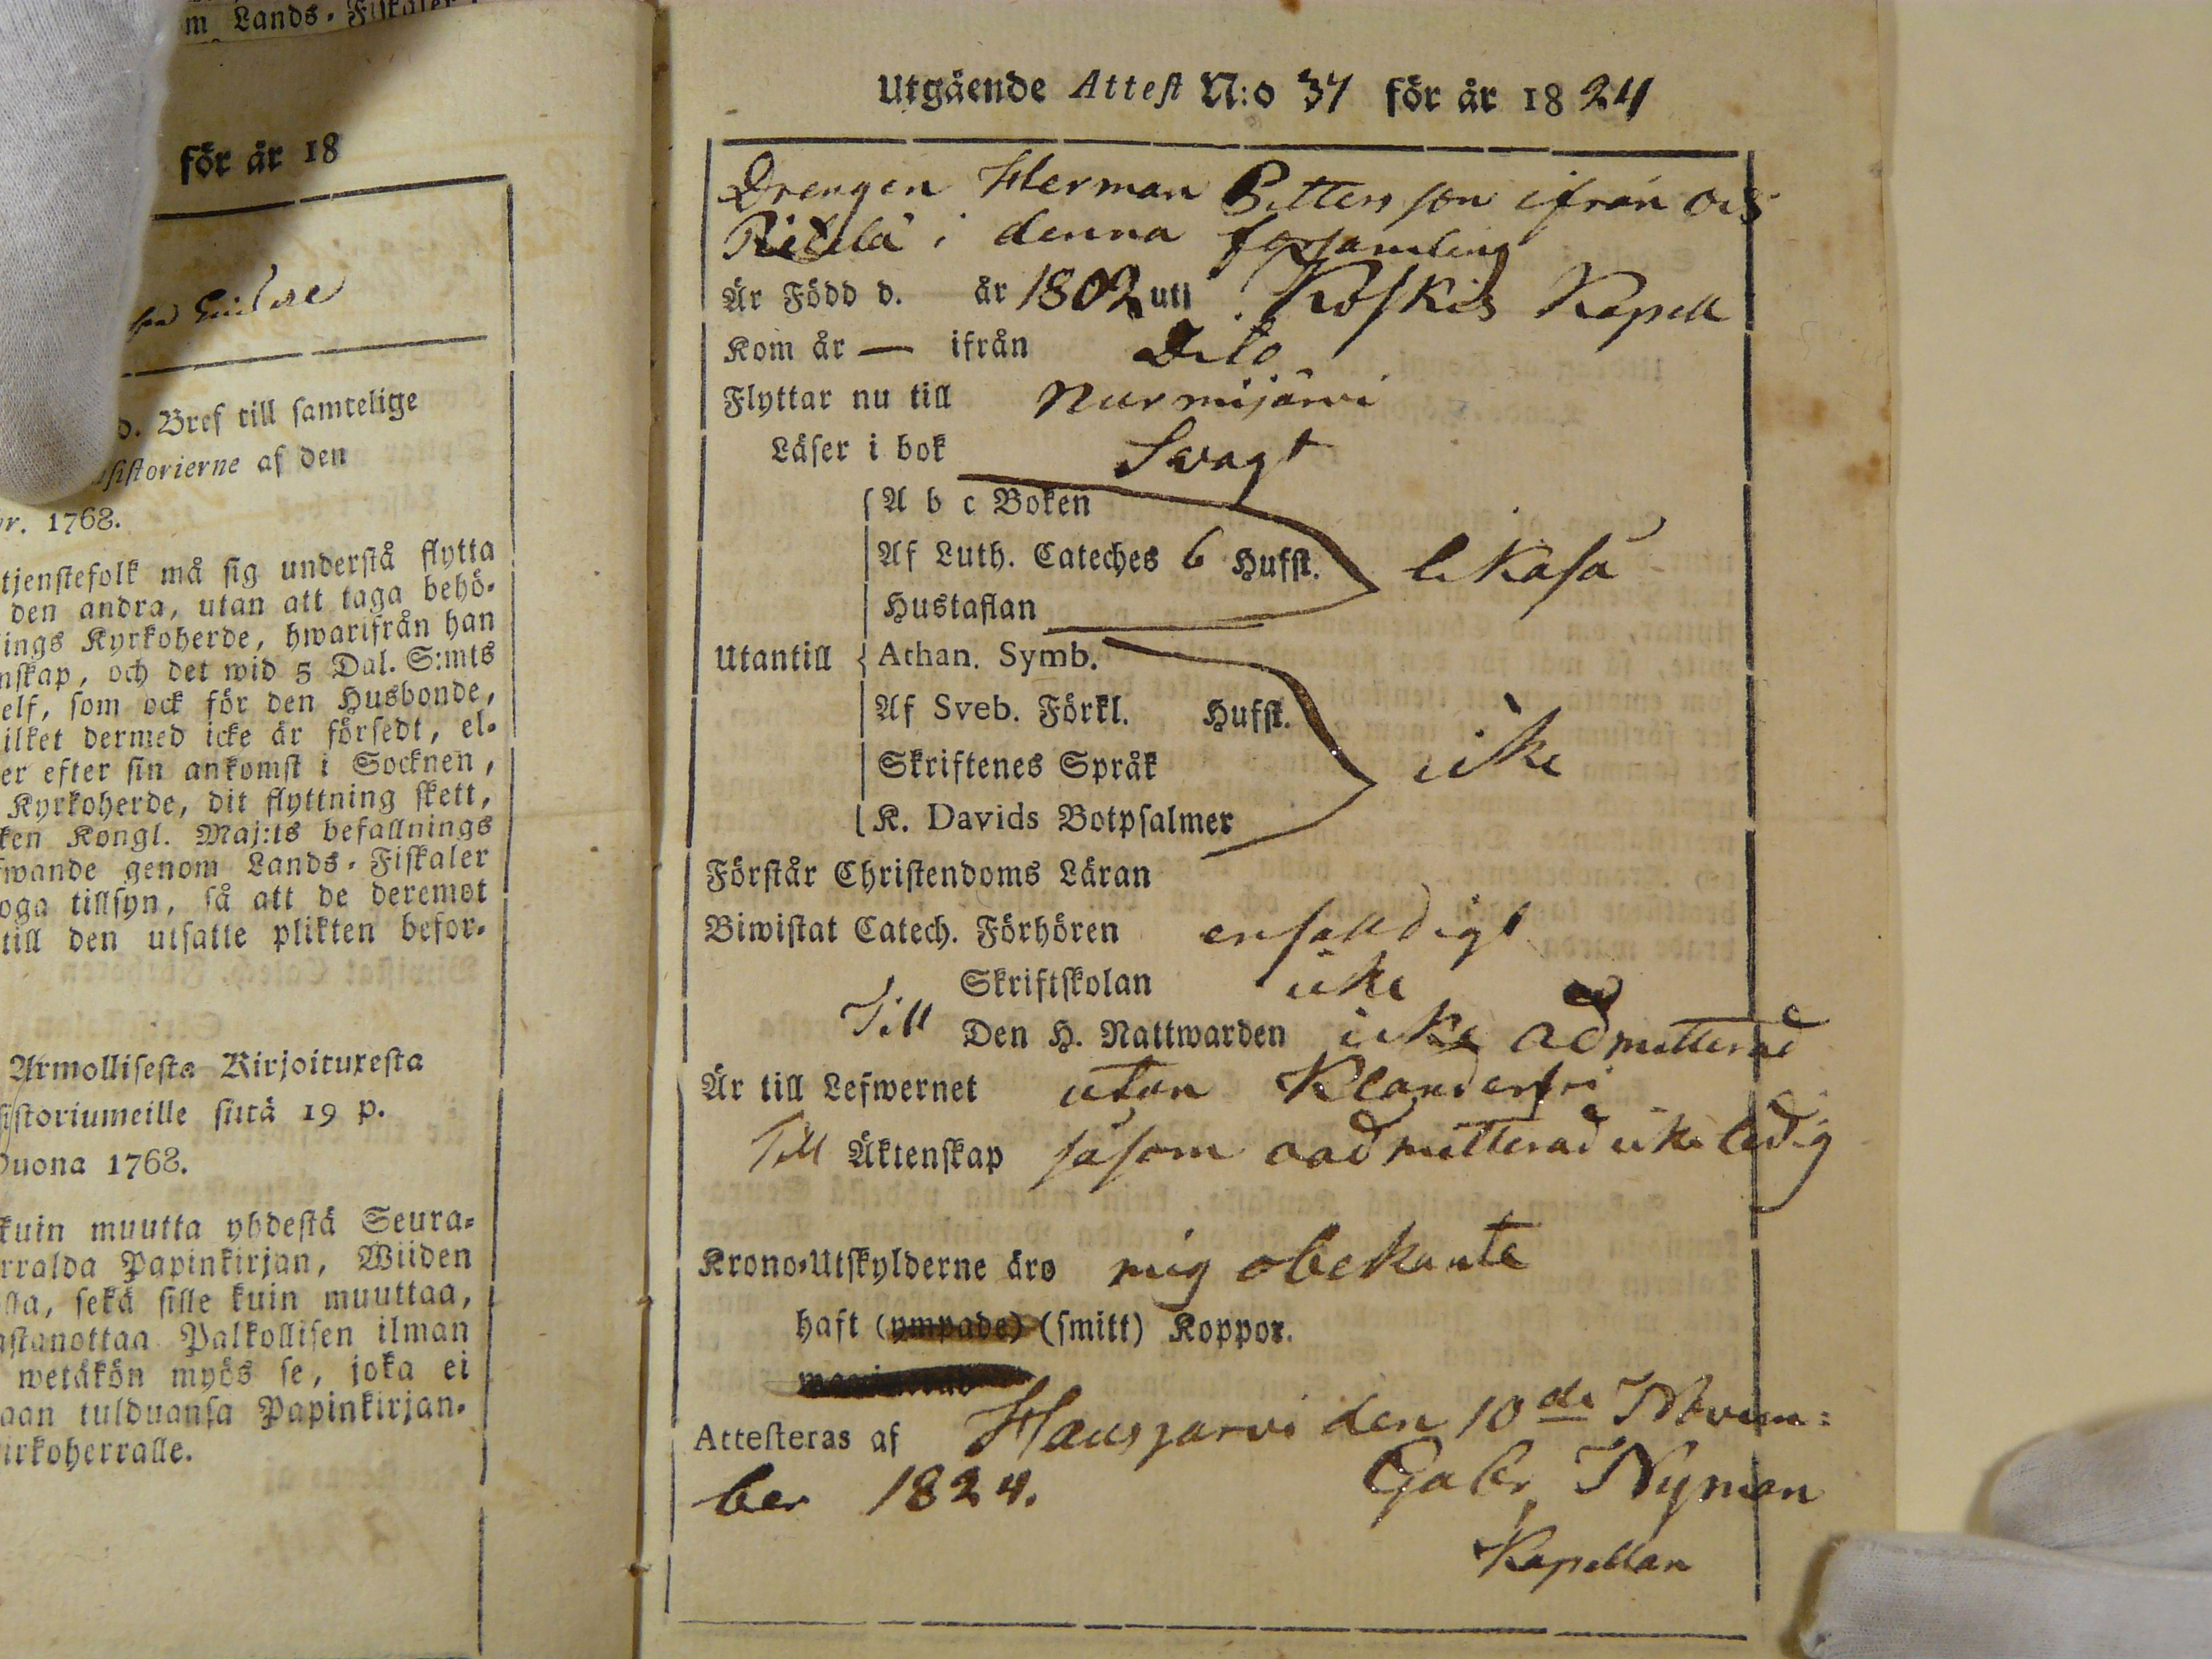 m Lands-Fiskaler
för år 18
d. Bref till samtelige
sistorierne af den
r. 1768.
tjenstefolk må sig understå flytta
den andra, utan att taga behö-
ings Kyrkoherde, hwarifrån han
nskap, och det wid 5 Dal. S:mts
elf, som ock för den Husbonde,
ilket dermed icke är försedt, el-
er efter sin ankomst i Socknen,
Kyrkoherde, dit flyttning skett,
ken Kongl. Maj:ts befallnings
fwande genom Lands-Fiskaler
oga tillsyn, så att de deremot
till den utsatte plikten befor-
Armollisesta Kirjoituxesta
sistoriumeille siitä 19 p.
Ouona 1768.
kuin muutta yhdestä Seura-
rralda Papinkirjan, Wiiden
lla, sekä sille kuin muuttaa,
astanottaa Palkollisen ilman
wetäkön myös se, joka ei
aan tulduansa Papinkirjan-
irkoherralle.
Utgående Attest N:o 37 för år 1824
Drengen Herman Pettersson ifrån
i denna församling
Är Född d. år 1802 uti Koskis Kapell
Kom år — ifrån Dito
Flyttar nu till Nurmijärvi
Läser i bok Svagt
A b c Boken
Af Luth. Cateches 6 Hufst. likaså
Hustaflan
Utantill Athan. Symb.
Af Sveb. Förkl. Hufst. icke
Skriftenes Språk
K. Davids Botpsalmer
Förstår Christendoms Läran
Biwistat Catech. Förhören enfalldigt
Skriftskolan icke
Till Den H. Nattwarden icke admitterad
Är till Lefwernet utan Klanderfri
Till Äktenskap såsom oadmitterad icke ledig
Krono-Utskylderne äro mig obekante
haft (ympade) (smitt) Koppor.
Attesteras af Hausjärvi den 10de Novem:
ber 1824. Gabr Nyman
Kapellan